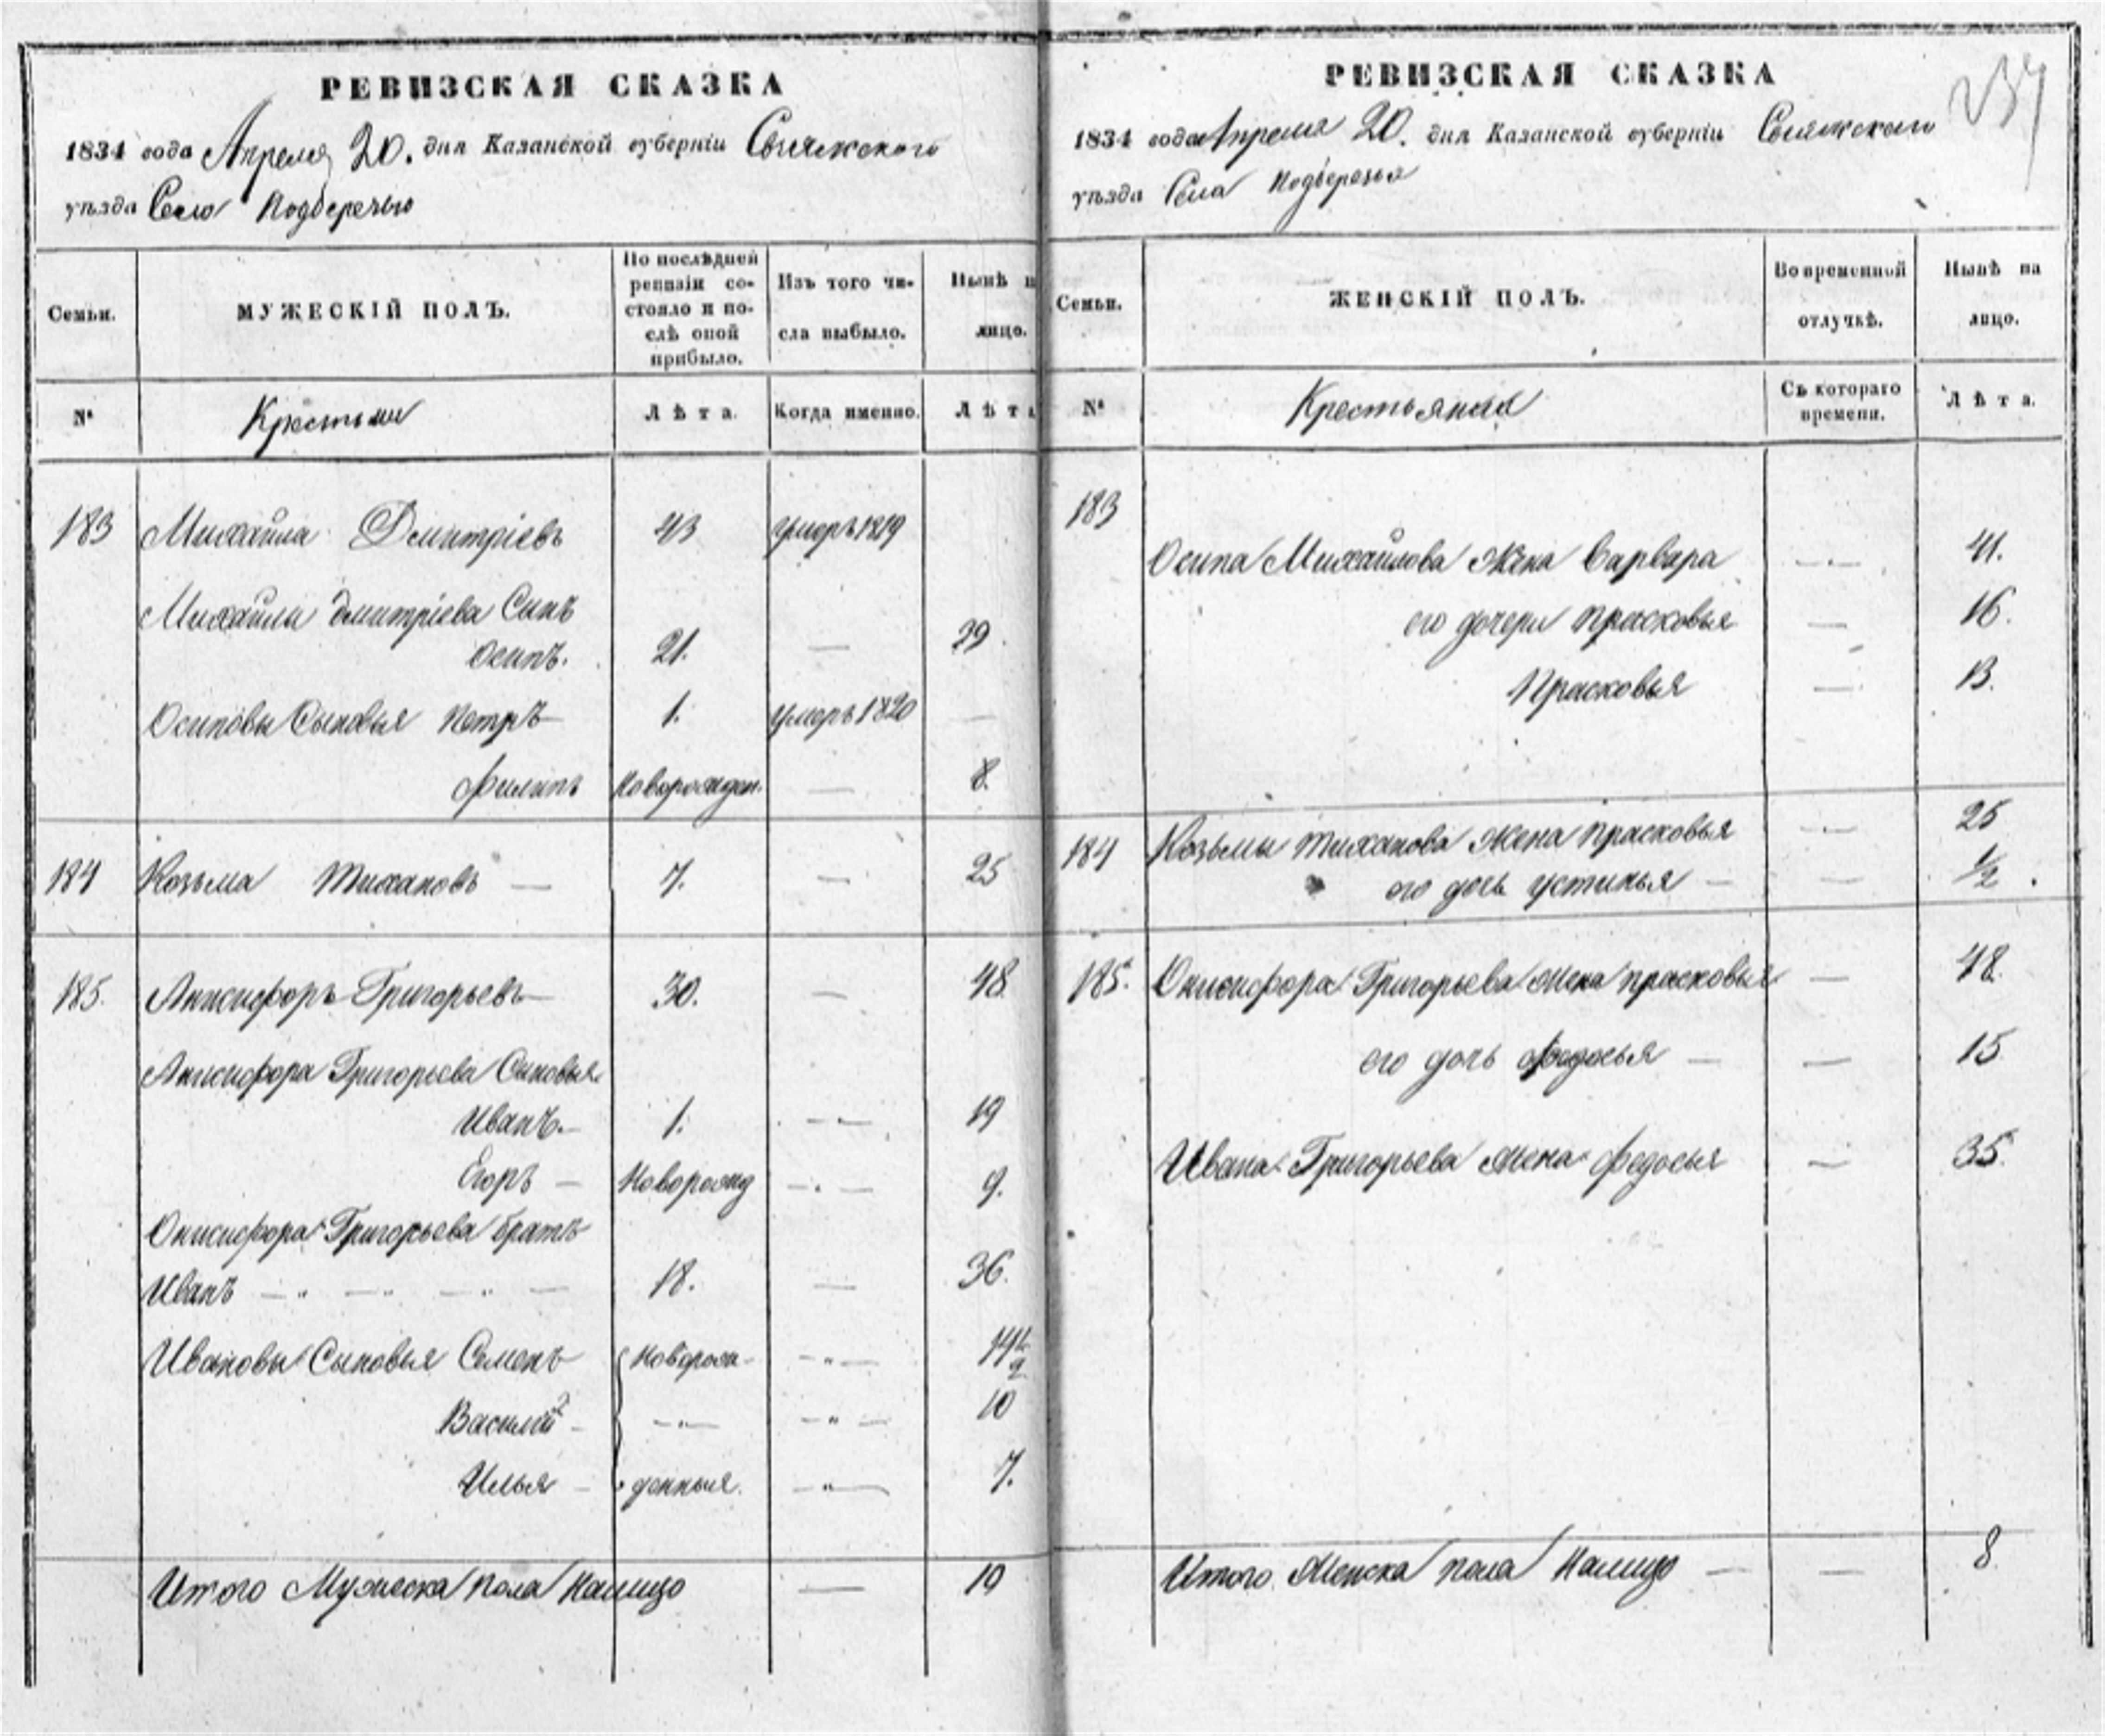 РЕВИЗСКАЯ СКАЗКА
1834 года Апреля 20. дня Казанской губерніи Свіяжского
уѣзда Село Подберезье
Семьи.
МУЖЕСКІЙ ПОЛЪ.
По послѣдней ревизіи состояло и послѣ оной прибыло.
Изъ того числа выбыло.
Нынѣ на лицо.
№ Крестьяне Лѣта. Когда именно. Лѣта
183 Михайла Дмитріевъ 43 умеръ 1819
Михайлы Дмитріева Сынъ
Осипъ. 21. — 39.
Осиповы Сыновья Петръ 1. умеръ 1820 —
Филипъ Новорожден. — 8.
184 Козьма Тихановъ — 7. — 25
185. Анисифоръ Григорьевъ — 30. — 48
Анисифора Григорьева Сыновья
Иванъ. — 1. — 19
Егоръ — Новорожд — 9.
Онисифора Григорьева братъ
Иванъ — 18. — 36.
Ивановы Сыновья Семенъ Новорож- — 14 1/2
Василий — — — 10
Илья — денныя. — 7.
Итого Мужеска пола Налицо — 10
РЕВИЗСКАЯ СКАЗКА
1834 года Апреля 20. дня Казанской губерніи Свіяжскаго
уѣзда Села Подберезья
Семьи.
ЖЕНСКІЙ ПОЛЪ.
Во временной отлучкѣ.
Нынѣ на лицо.
№ Крестьянки Съ котораго времени. Лѣта.
183
Осипа Михайлова Жена Варвара — 41.
его дочери Прасковья — 16.
Прасковья — 13.
184 Козьмы Тиханова Жена Прасковья — 25
его дочь Устинья — 1/2.
185. Онисифора Григорьева Жена Прасковья — 48.
его дочь Федосья — 15
Ивана Григорьева Жена Федосья — 35.
Итого Женска пола Налицо — 8